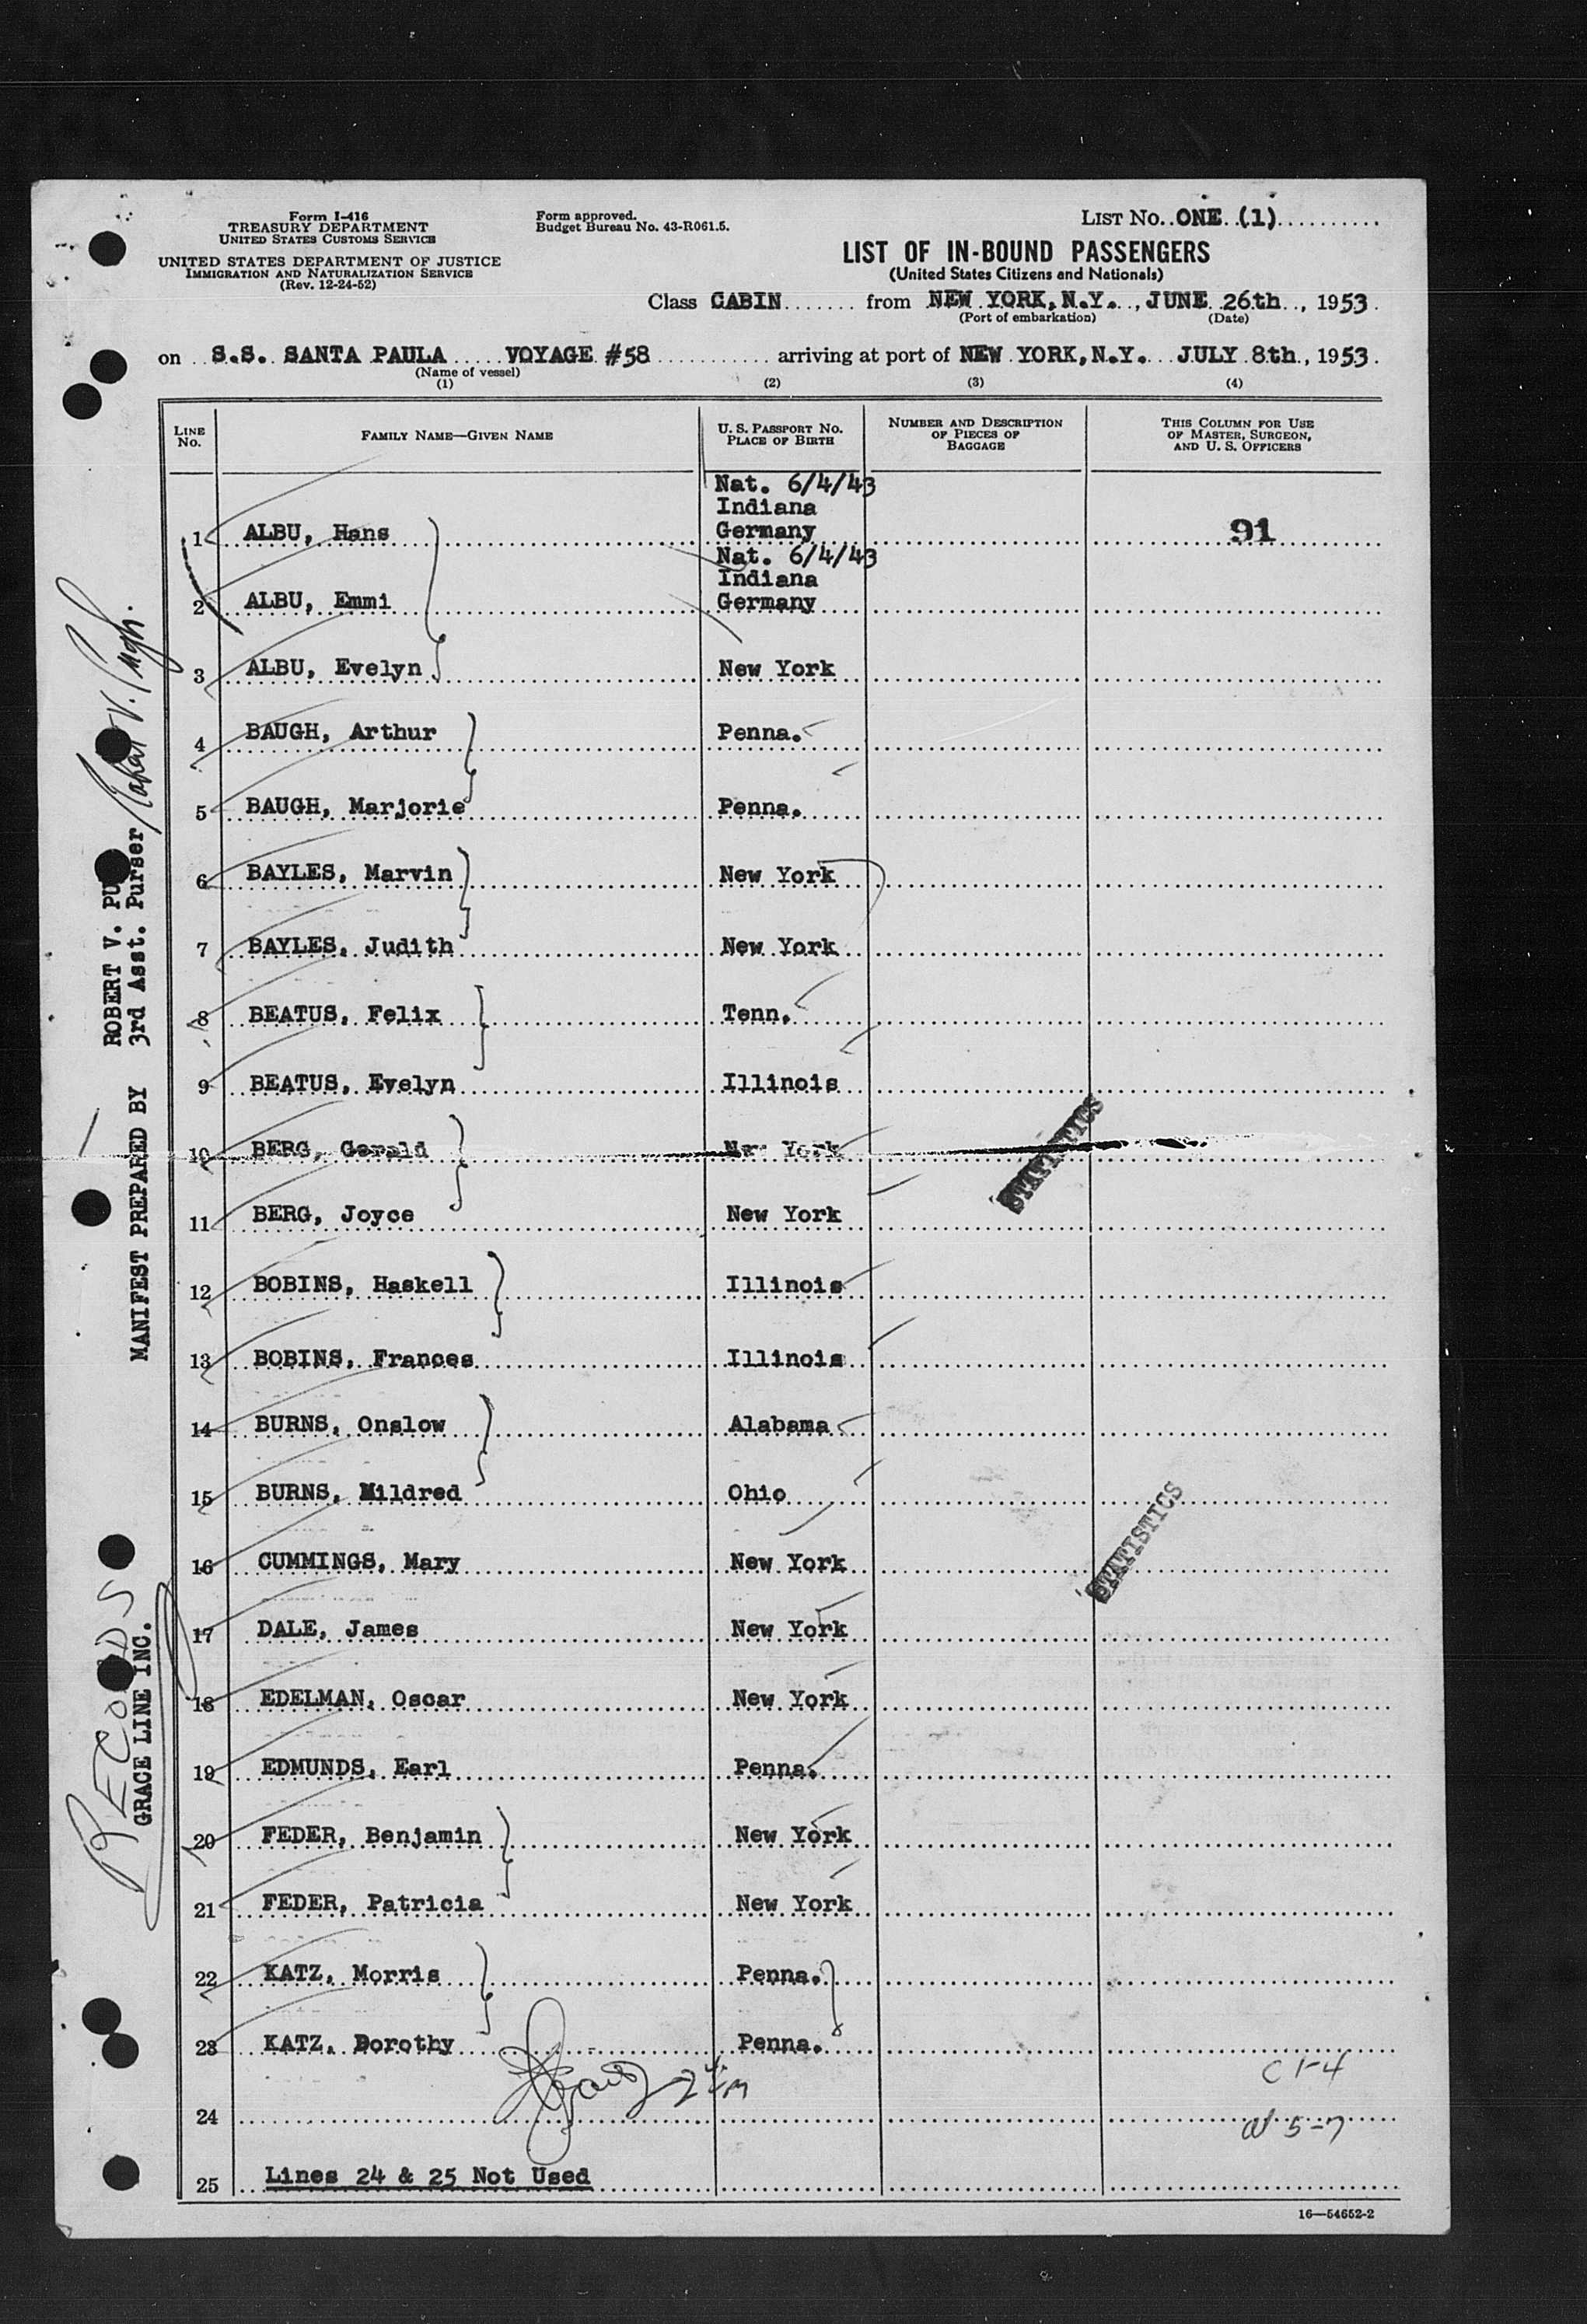 Form I-416
TREASURY DEPARTMENT
UNITED STATES CUSTOMS SERVICE
UNITED STATES DEPARTMENT OF JUSTICE
IMMIGRATION AND NATURALIZATION SERVICE
(Rev. 12-24-52)
Form approved.
Budget Bureau No. 43-R061.5.
LIST No. ONE (1)
LIST OF IN-BOUND PASSENGERS
(United States Citizens and Nationals)
Class CABIN from NEW YORK, N.Y., JUNE 26th, 1953.
(Port of embarkation) (Date)
on S.S. SANTA PAULA VOYAGE #58 arriving at port of NEW YORK, N.Y. JULY 8th, 1953.
(Name of vessel)
(1) (2) (3) (4)
LINE No. FAMILY NAME—GIVEN NAME U. S. PASSPORT No. PLACE OF BIRTH NUMBER AND DESCRIPTION OF PIECES OF BAGGAGE THIS COLUMN FOR USE OF MASTER, SURGEON, AND U. S. OFFICERS
Nat. 6/4/43
Indiana
1 ALBU, Hans Germany 91
Nat. 6/4/43
Indiana
2 ALBU, Emmi Germany
3 ALBU, Evelyn New York
4 BAUGH, Arthur Penna.
5 BAUGH, Marjorie Penna.
6 BAYLES, Marvin New York
7 BAYLES, Judith New York
8 BEATUS, Felix Tenn.
9 BEATUS, Evelyn Illinois
10 BERG, Gerald New York
STATISTICS
11 BERG, Joyce New York
12 BOBINS, Haskell Illinois
13 BOBINS, Frances Illinois
14 BURNS, Onslow Alabama
15 BURNS, Mildred Ohio
STATISTICS
16 CUMMINGS, Mary New York
17 DALE, James New York
18 EDELMAN, Oscar New York
19 EDMUNDS, Earl Penna.
20 FEDER, Benjamin New York
21 FEDER, Patricia New York
22 KATZ, Morris Penna.
23 KATZ, Dorothy Penna.
C 1-4
24
5-7
25 Lines 24 & 25 Not Used
16—54652-2
MANIFEST PREPARED BY ROBERT V. PU
3rd Asst. Purser
GRACE LINE INC.
RECORDS